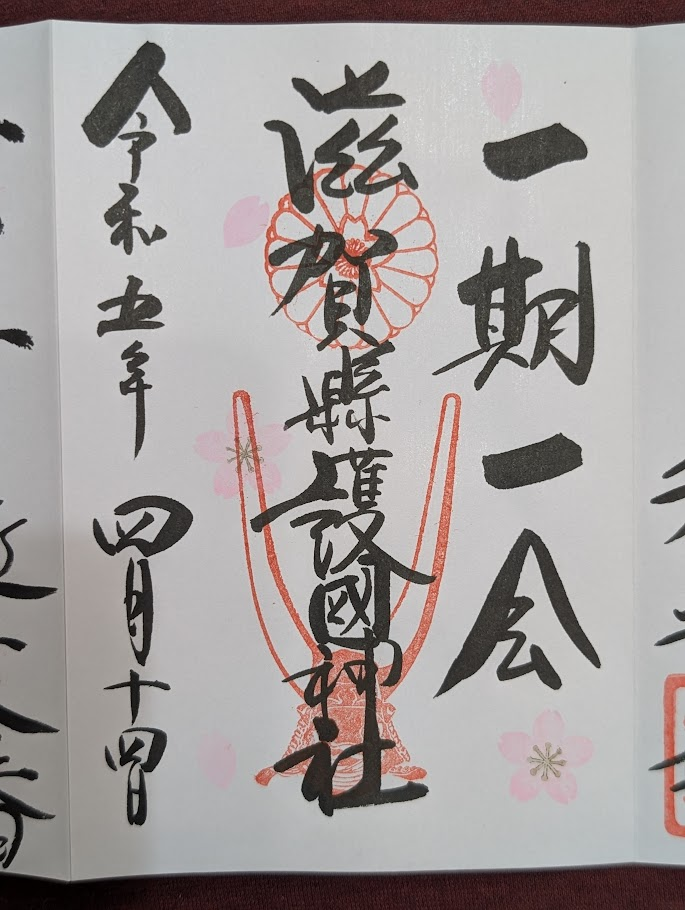 一期一会
滋賀縣護國神社
令和五年 四月十四日